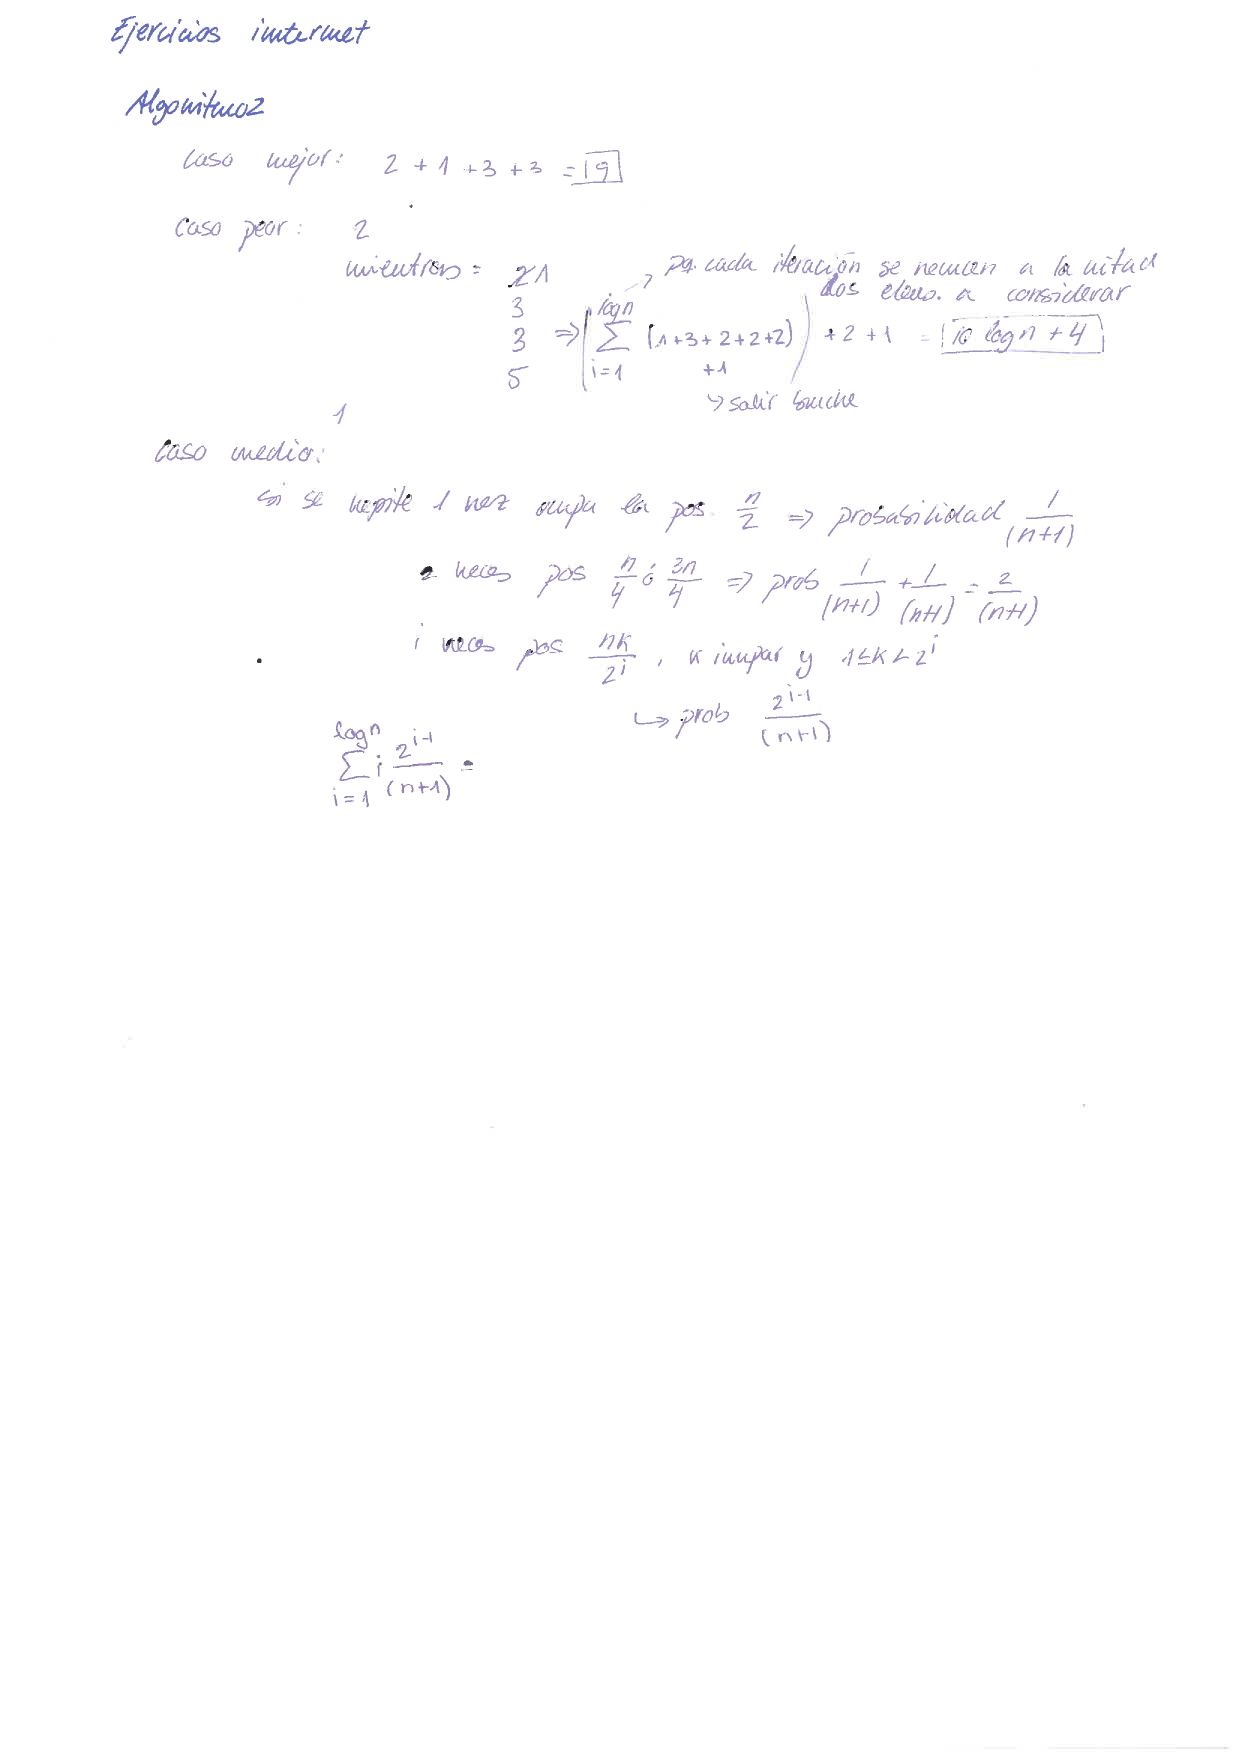 Ejercicios internet
Algoritmo 2
Caso mejor: 2 + 1 + 3 + 3 = 9
Caso peor: 2
mientras = 1 pq. cada iteración se reducen a la mitad
los elem. a considerar
3
3 ⇒ (∑_{i=1}^{log n} (1+3+2+2+2) + 1) + 2 + 1 = 10 log n + 4
5
↳ salir bucle
1
Caso medio:
Si se repite 1 vez ocupa la pos. n/2 ⇒ probabilidad 1/(n+1)
2 veces pos n/4 ó 3n/4 ⇒ prob 1/(n+1) + 1/(n+1) = 2/(n+1)
i veces pos nk/2^i , k impar y 1≤k<2^i
↳ prob 2^{i-1}/(n+1)
∑_{i=1}^{log n} i 2^{i-1}/(n+1) =